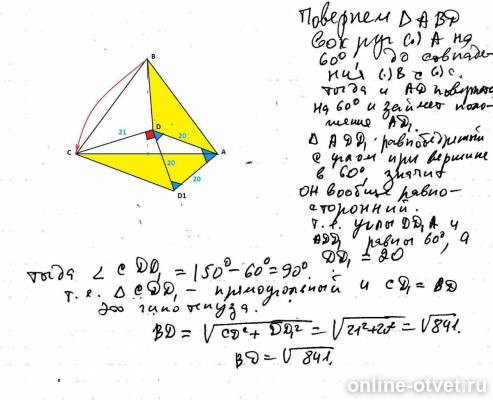 Повернем △ABD
Вокруг (·) A на
60° до совпаде-
ния (·) B с (·) C.
тогда и AD повернется
на 60° и займет поло-
жение AD₁
△ADD₁ равнобедренный
с углом при вершине
в 60°, значит
он вообще равно-
сторонний.
т.е. углы DD₁A и
ADD₁ равны 60°, а
DD₁ = 20
B
D
21
20
C
20
A
20
D1
тогда ∠CDD₁ = 150° - 60° = 90°
т.е. △CDD₁ - прямоугольный и CD₁ = BD
это гипотенуза.
BD = √CD² + DD₁² = √21² + 20² = √841.
BD = √841.
online-otvet.ru